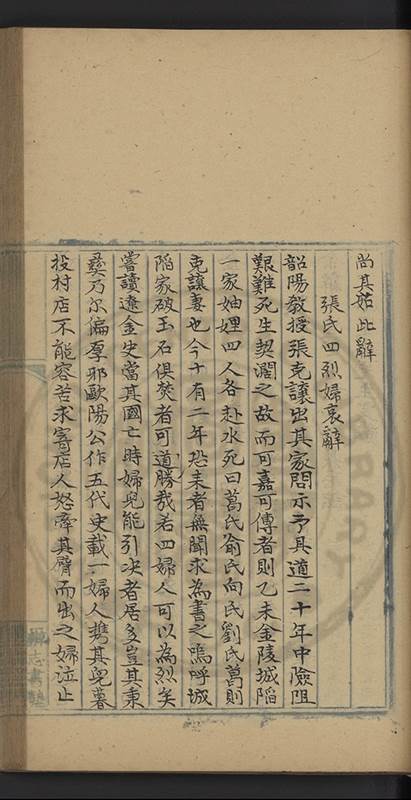 尚其妬此辭
張氏四烈婦哀辭
韶陽教授張克讓出其家問示予具道二十年中險阻
艱難死生契濶之故而可嘉可傳者則乙未金陵城陷
一家妯娌四人各赴水死曰葛氏俞氏向氏劉氏葛則
克讓妻也今十有二年恐来者無聞求為書之嗚呼城
陷家破玉石俱焚者可道勝㦲若四婦人可以為烈矣
嘗讀遼金史當其國亡時婦兒能引决者居多豈其秉
彝乃尔偏厚邪歐陽公作五代史載一婦人携其兒暮
投村店不能容苦求寄店人怒牽其臂而出之婦泣止